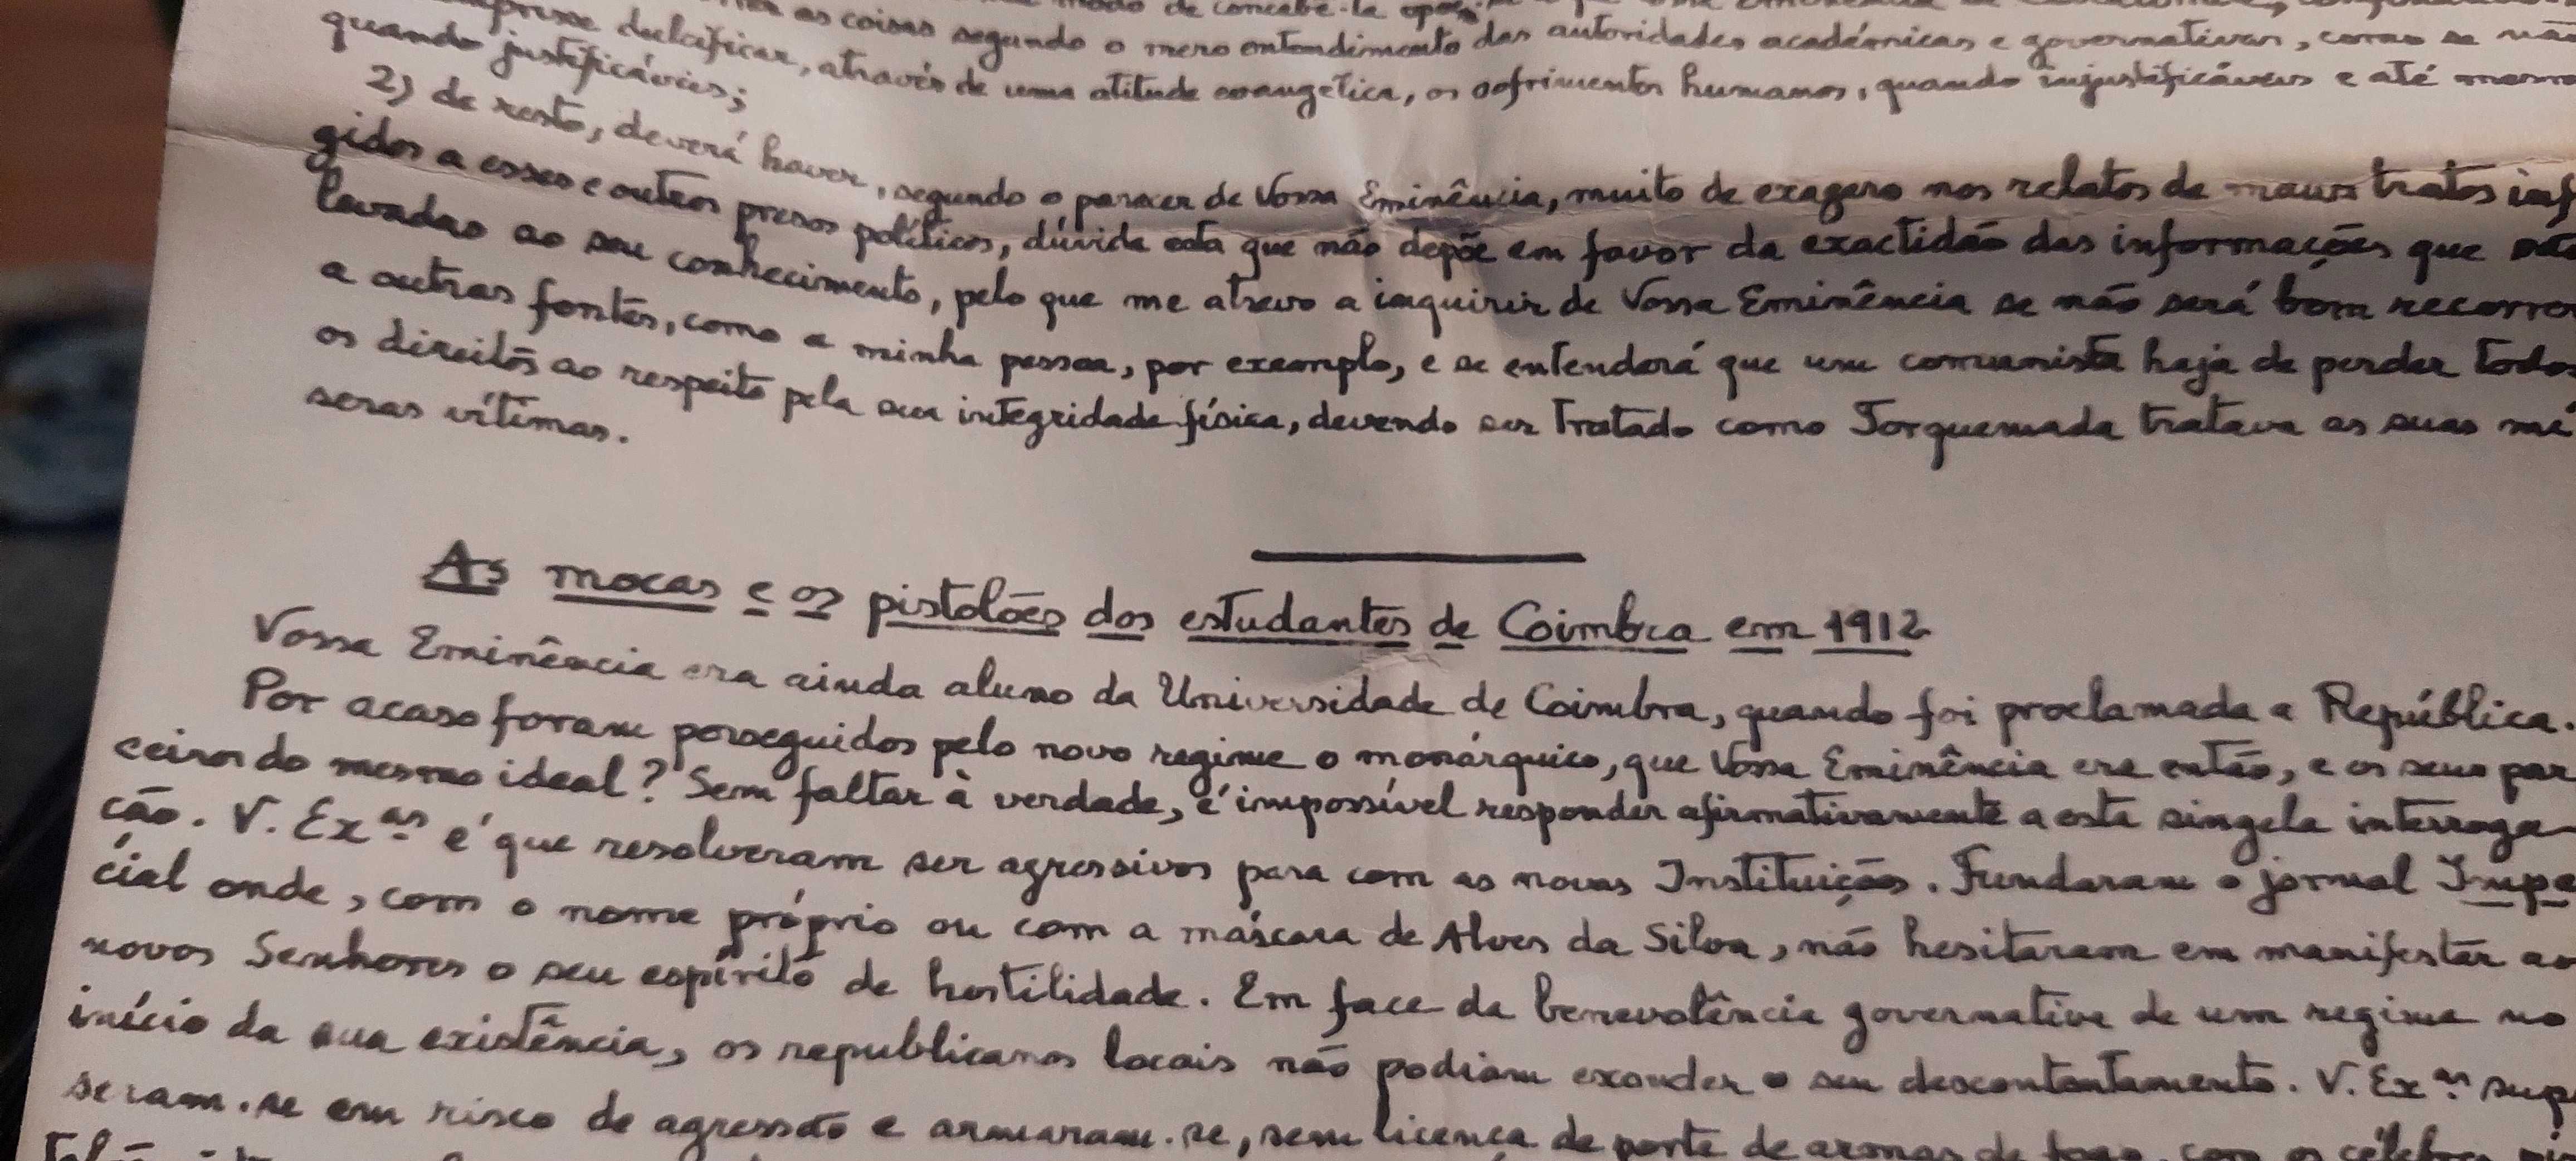 modo de concebê-la
as coisas segundo o mero entendimento das autoridades académicas e governativas, como se não
dulcificar, através de uma atitude evangélica, os sofrimentos humanos, quando injustificáveis e até mesmo
quando justificáveis;
2) de resto, deverá haver, segundo o parecer de Vossa Eminência, muito de exagero nos relatos de maus tratos inf
gidos a esses e outros presos políticos, dúvida esta que não depõe em favor da exactidão das informações que são
levadas ao seu conhecimento, pelo que me atrevo a inquirir de Vossa Eminência se não será bom recorrer
a outras fontes, como a minha pessoa, por exemplo, e se entenderá que um comunista haja de perder todos
os direitos ao respeito pela sua integridade física, devendo ser tratado como Torquemada tratava as suas mí
seras vítimas.
As mocas e os pistolões dos estudantes de Coimbra em 1912
Vossa Eminência era ainda aluno da Universidade de Coimbra, quando foi proclamada a República.
Por acaso foram perseguidos pelo novo regime o monárquico, que Vossa Eminência era então, e os seus par
ceiros do mesmo ideal? Sem faltar à verdade, é impossível responder afirmativamente a esta singela interroga
ção. V. Exas. é que resolveram ser agressivos para com as novas Instituições. Fundaram o jornal Impa
cial onde, com o nome próprio ou com a máscara de Alves da Silva, não hesitaram em manifestar ao
novos Senhores o seu espírito de hostilidade. Em face da benevolência governativa de um regime no
início da sua existência, os republicanos locais não podiam esconder o seu descontentamento. V. Exas. sup
seram-se em risco de agressão e armaram-se, sem licença de porte de armas de fogo, com os célebres